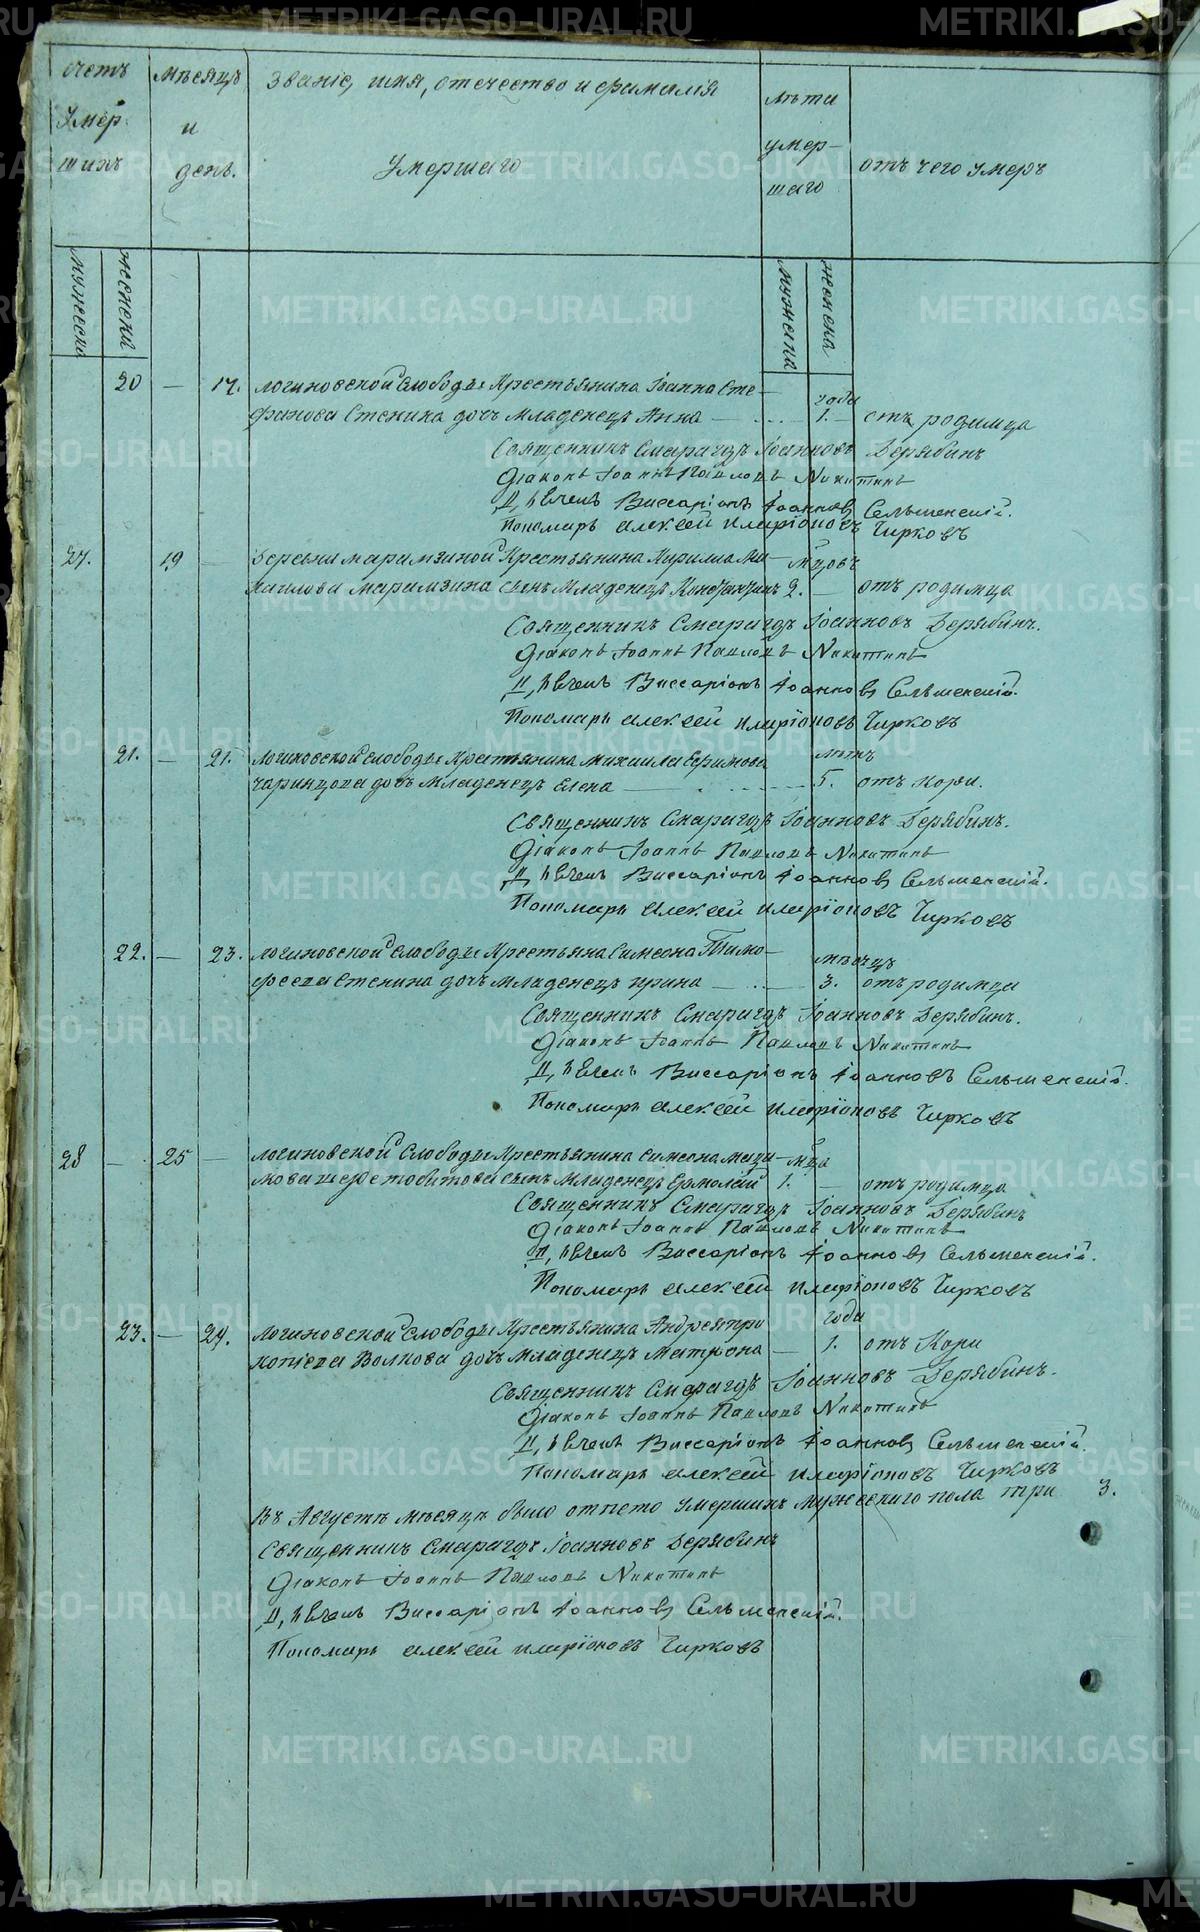 счетъ умершихъ
мѣсяцъ и день.
Званіе, имя, отечество и фамилія
умершаго
лѣта умершаго
отъ чего умеръ
мужеска
женска
мужеска
женска
20 — 17. логиновской слободы крестьянина Іоанна Сте- года
фанова Стенина дочь младенецъ Анна — 1. — отъ родимца
Священникъ Смарагдъ Іоанновъ Дерябинъ
Діаконъ Іоаннъ Павловъ Никитинъ
Виссаріонъ Іоанновъ Сельменскій.
Пономарь Алексей Иларіоновъ Чирковъ
27. 19 — деревни марамзиной крестьянина Кирилла Ми- м̃цовъ
хаилова марамзина сынъ младенецъ Константинъ 2. — отъ родимца
Священникъ Смарагдъ Іоанновъ Дерябинъ.
Діаконъ Іоаннъ Павловъ Никитинъ
Виссаріонъ Іоанновъ Сельменскій.
Пономарь Алексей Иларіоновъ Чирковъ
21. — 21. логиновской слободы крестьянина Михаила Ефимова лѣтъ
дочь младенецъ Елена — 5. отъ кори.
Священникъ Смарагдъ Іоанновъ Дерябинъ.
Діаконъ Іоаннъ Павловъ Никитинъ
Виссаріонъ Іоанновъ Сельменскій.
Пономарь Алексей Иларіоновъ Чирковъ
22. — 23. логиновской слободы крестьяна Симеона Тимо- мѣсяцъ
феева Стенина дочь младенецъ ирина — 3. отъ родимца
Священникъ Смарагдъ Іоанновъ Дерябинъ.
Діаконъ Іоаннъ Павловъ Никитинъ
Виссаріонъ Іоанновъ Сельменскій.
Пономарь Алексей Иларіоновъ Чирковъ
28 — 25 — логиновской слободы крестьянина Симеона м̃ца
сынъ младенецъ Ермолай 1. — отъ родимца
Священникъ Смарагдъ Іоанновъ Дерябинъ
Діаконъ Іоаннъ Павловъ Никитинъ
Виссаріонъ Іоанновъ Сельменскій.
Пономарь Алексей Иларіоновъ Чирковъ
23. — 29. логиновской слободы крестьянина Андрея про года
копіева Волкова дочь младенецъ Матрона — 1. отъ Кори
Священникъ Смарагдъ Іоанновъ Дерябинъ.
Діаконъ Іоаннъ Павловъ Никитинъ
Виссаріонъ Іоанновъ Сельменскій.
Пономарь Алексей Иларіоновъ Чирковъ
Въ Августѣ мѣсяцѣ было отпето умершихъ мужескаго пола три 3.
Священникъ Смарагдъ Іоанновъ Дерябинъ
Діаконъ Іоаннъ Павловъ Никитинъ
Виссаріонъ Іоанновъ Сельменскій.
Пономарь Алексей Иларіоновъ Чирковъ
METRIKI.GASO-URAL.RU